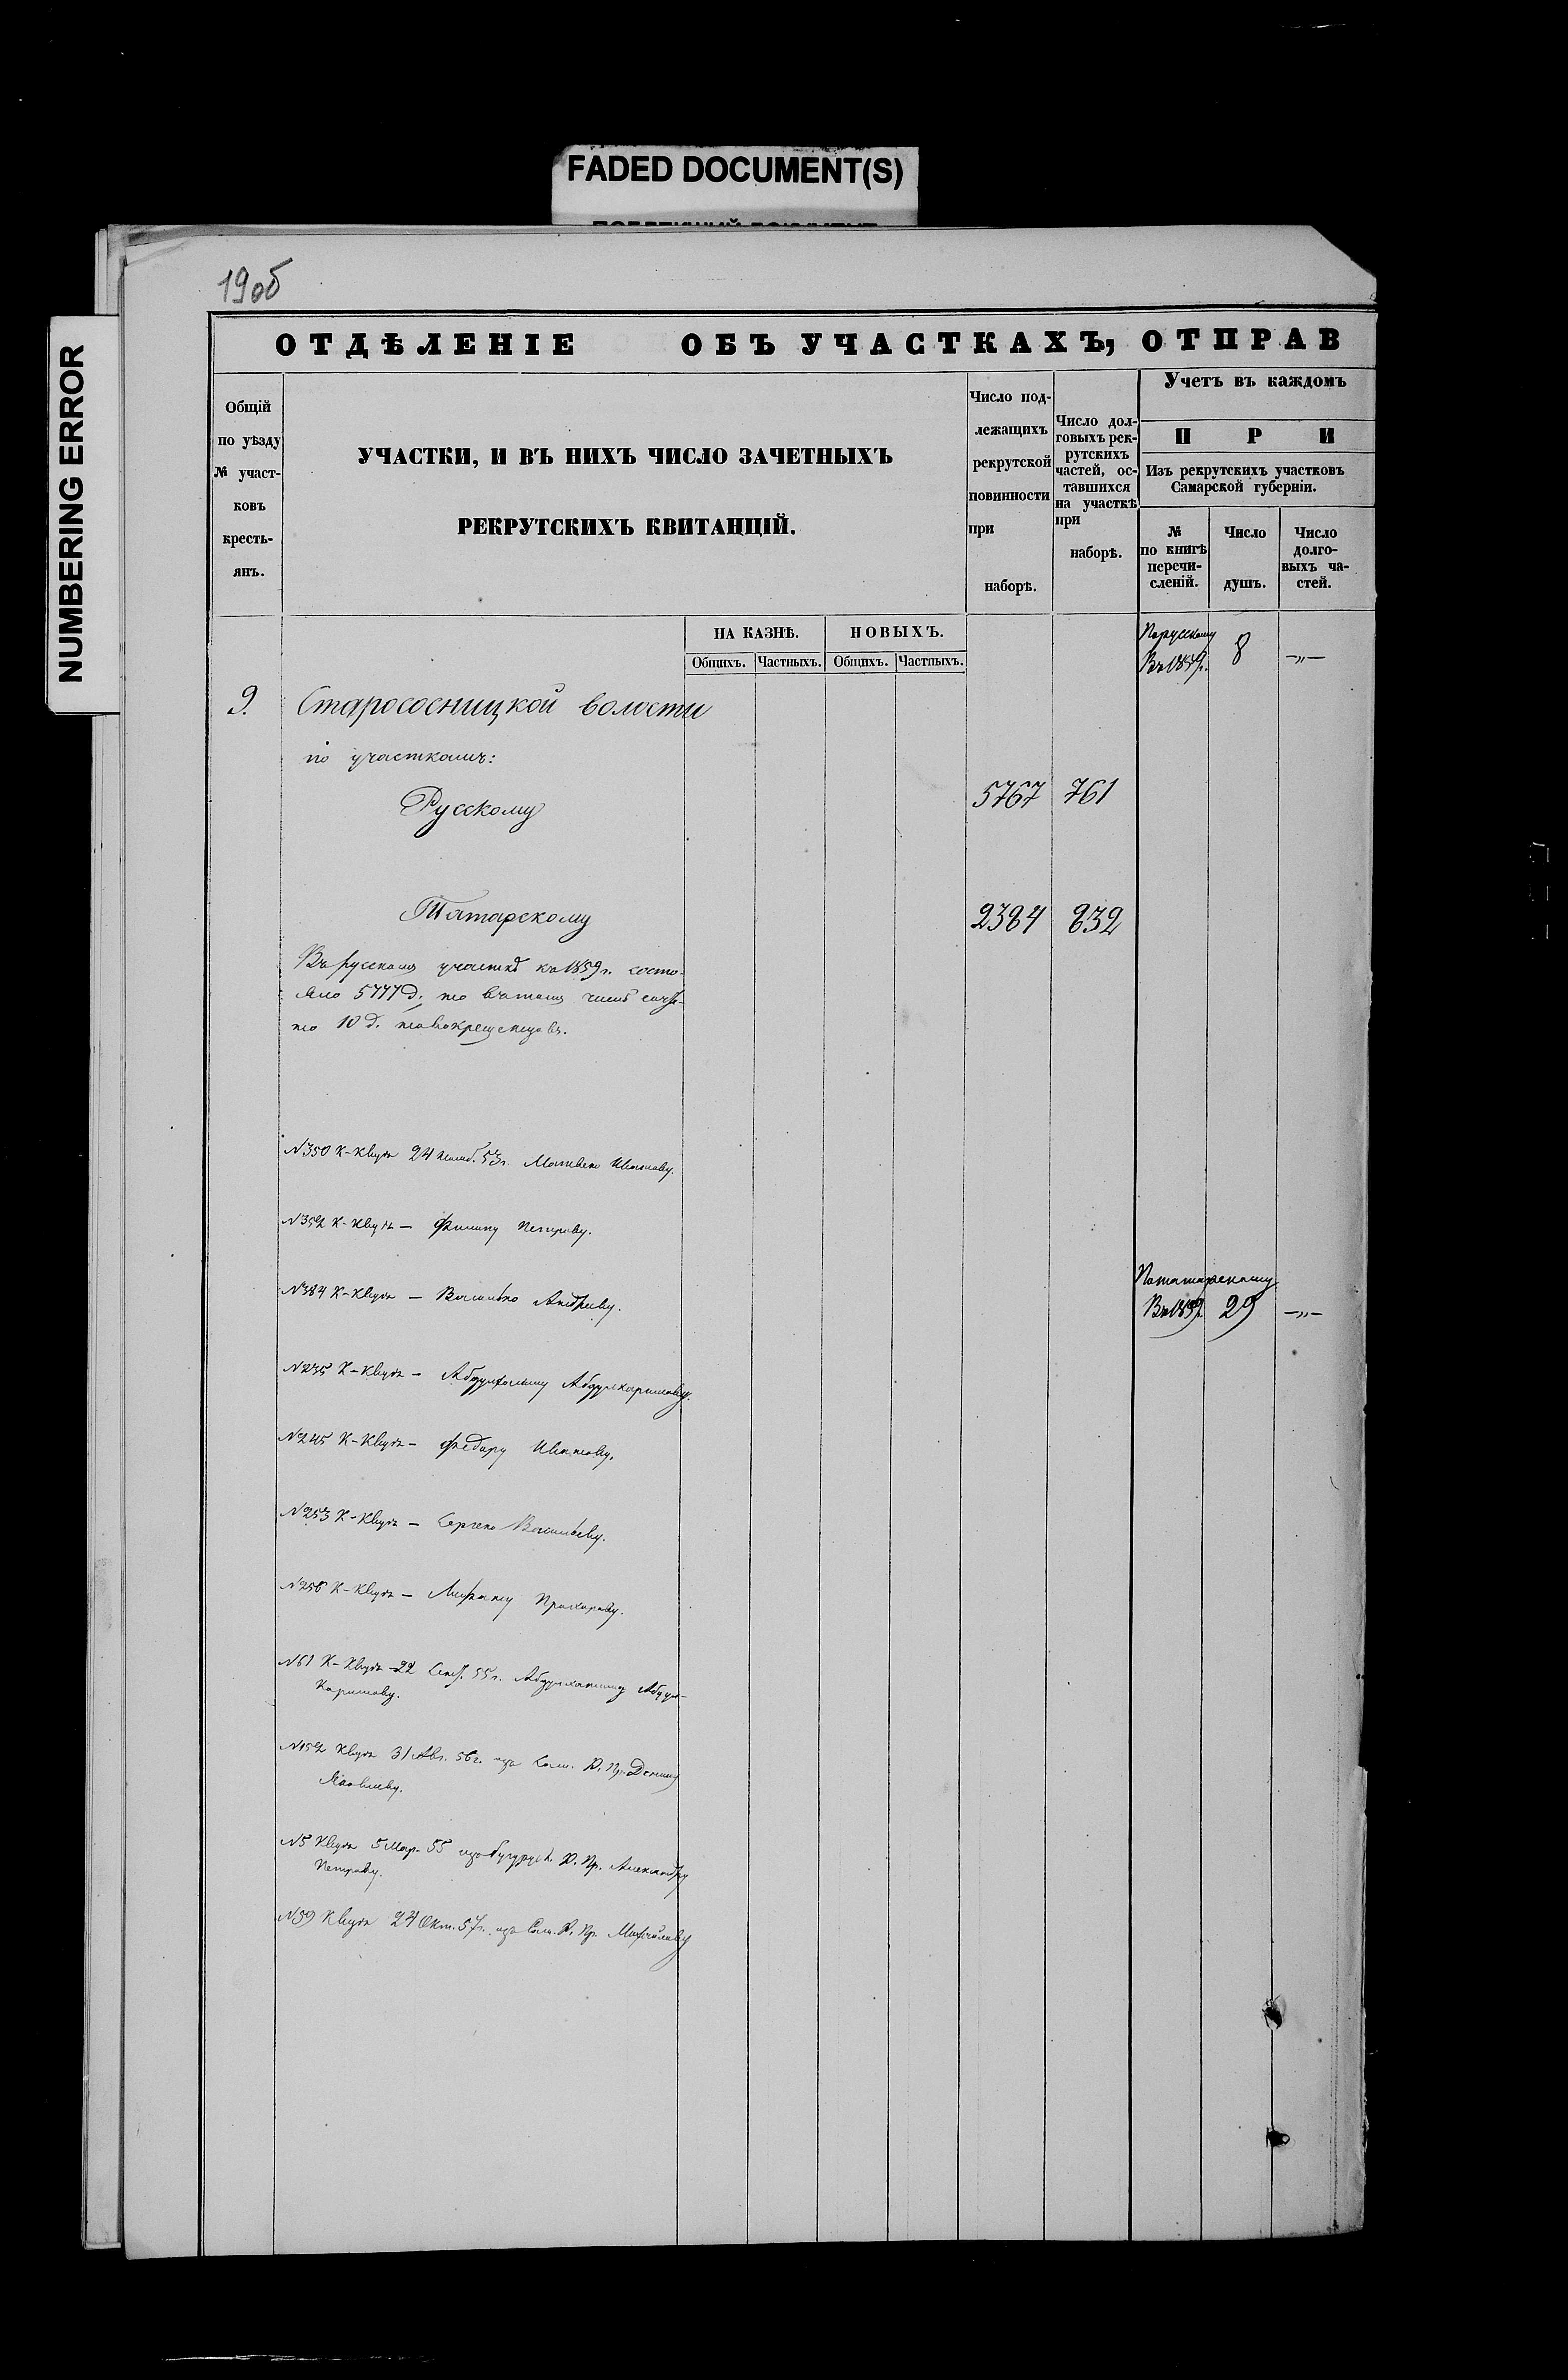 FADED DOCUMENT(S)
NUMBERING ERROR
19об
ОТДѢЛЕНІЕ ОБЪ УЧАСТКАХЪ, ОТПРАВ
Общій
по уѣзду
№ участ-
ковъ
кресть-
янъ.
УЧАСТКИ, И ВЪ НИХЪ ЧИСЛО ЗАЧЕТНЫХЪ
РЕКРУТСКИХЪ КВИТАНЦІЙ.
Число под-
лежащихъ
рекрутской
повинности
при
наборѣ.
Число дол-
говыхъ рек-
рутскихъ
частей, ос-
тавшихся
на участкѣ
при
наборѣ.
Учетъ въ каждомъ
П Р И
Изъ рекрутскихъ участковъ
Самарской губерніи.
№
по книгѣ
перечи-
сленій.
Число
душъ.
Число
долго-
выхъ ча-
стей.
НА КАЗНѢ. НОВЫХЪ.
Общихъ. Частныхъ. Общихъ. Частныхъ.
Порусскому
Въ 1859г. 8 —„—
9. Старососницкой волости
по участкамъ:
Русскому 5767 761
Татарскому 2384 832
Въ русскомъ участкѣ къ 1859г. состо-
яло 5777 д. но въ томъ числѣ
но 10 д. новокрещенцовъ.
№350 К-Квит 24 53г. Матвею Иванову.
№352 К-Квит — Филипу Петрову.
№384 К-Квит — Василью Андрееву.
Потатарскому
Въ 1859г. 29 —„—
№235 К-Квит — Абдулкаримову.
№245 К-Квит — Федору Иванову.
№253 К-Квит — Сергею Васильеву.
К-Квит — Прохорову.
№61 К-Квит 22 Сент. 55г. Абдул-
Каримову.
№152 Квит 31 Авг. 56г. изъ Сам. Р. Пр.
Яковлеву.
№5 Квит 5 Мар. 55 изъ Бугурусл. Р. Пр. Александру
Петрову.
№59 Квит 24 Окт. 57г. изъ Сам. Р. Пр.